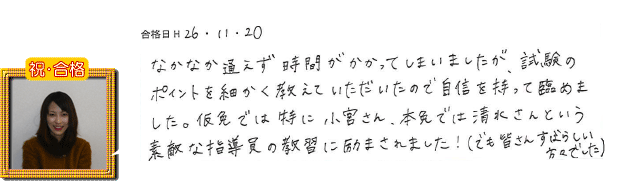 合格日 H 26・11・20
祝・合格
なかなか通えず時間がかかってしまいましたが、試験の
ポイントを細かく教えていただいたので自信を持って臨めま
した。仮免では特に小宮さん、本免では清水さんという
素敵な指導員の教習に励まされました！(でも皆さんすばらしい
方々でした)